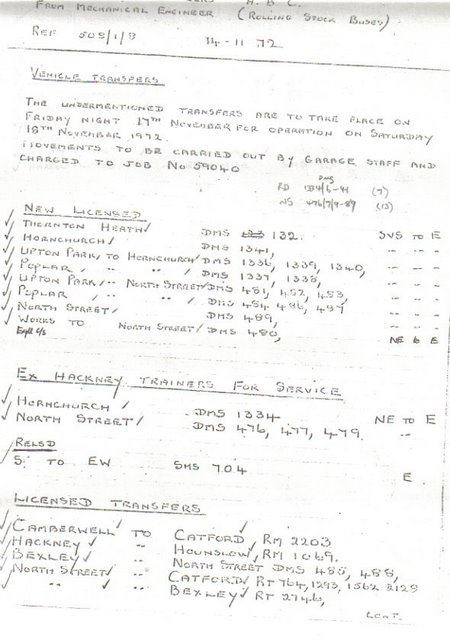 A. B. C.
FROM MECHANICAL ENGINEER (ROLLING STOCK BUSES)
REF 505/1/8 14-11-72
VEHICLE TRANSFERS
THE UNDERMENTIONED TRANSFERS ARE TO TAKE PLACE ON
FRIDAY NIGHT 17TH NOVEMBER FOR OPERATION ON SATURDAY
18TH NOVEMBER 1972.
MOVEMENTS TO BE CARRIED OUT BY GARAGE STAFF AND
CHARGED TO JOB No 59040
DMS
RD 1334/6-41 (7)
NS 476/7/9-89 (13)
NEW LICENSED
THORNTON HEATH DMS 132. SVS TO E
HORNCHURCH DMS 1341, " " "
UPTON PARK, TO HORNCHURCH DMS 1336, 1339, 1340, " " "
POPLAR " " DMS 1337, 1338, " " "
UPTON PARK " NORTH STREET DMS 481, 482, 483, " " "
POPLAR " " DMS 484 486, 487 " " "
NORTH STREET DMS 489, " " "
WORKS TO NORTH STREET DMS 480, NE to E
EX HACKNEY TRAINERS FOR SERVICE
HORNCHURCH DMS 1334 NE TO E
NORTH STREET DMS 476, 477, 479. "
RELSD
S. TO EW SMS 704 E
LICENSED TRANSFERS
CAMBERWELL TO CATFORD, RM 2203
HACKNEY " HOUNSLOW, RM 1069.
BEXLEY " NORTH STREET DMS 485, 488,
NORTH STREET " CATFORD RT 764, 1293, 1562 3129
" " BEXLEY RT 2746,
CONT.